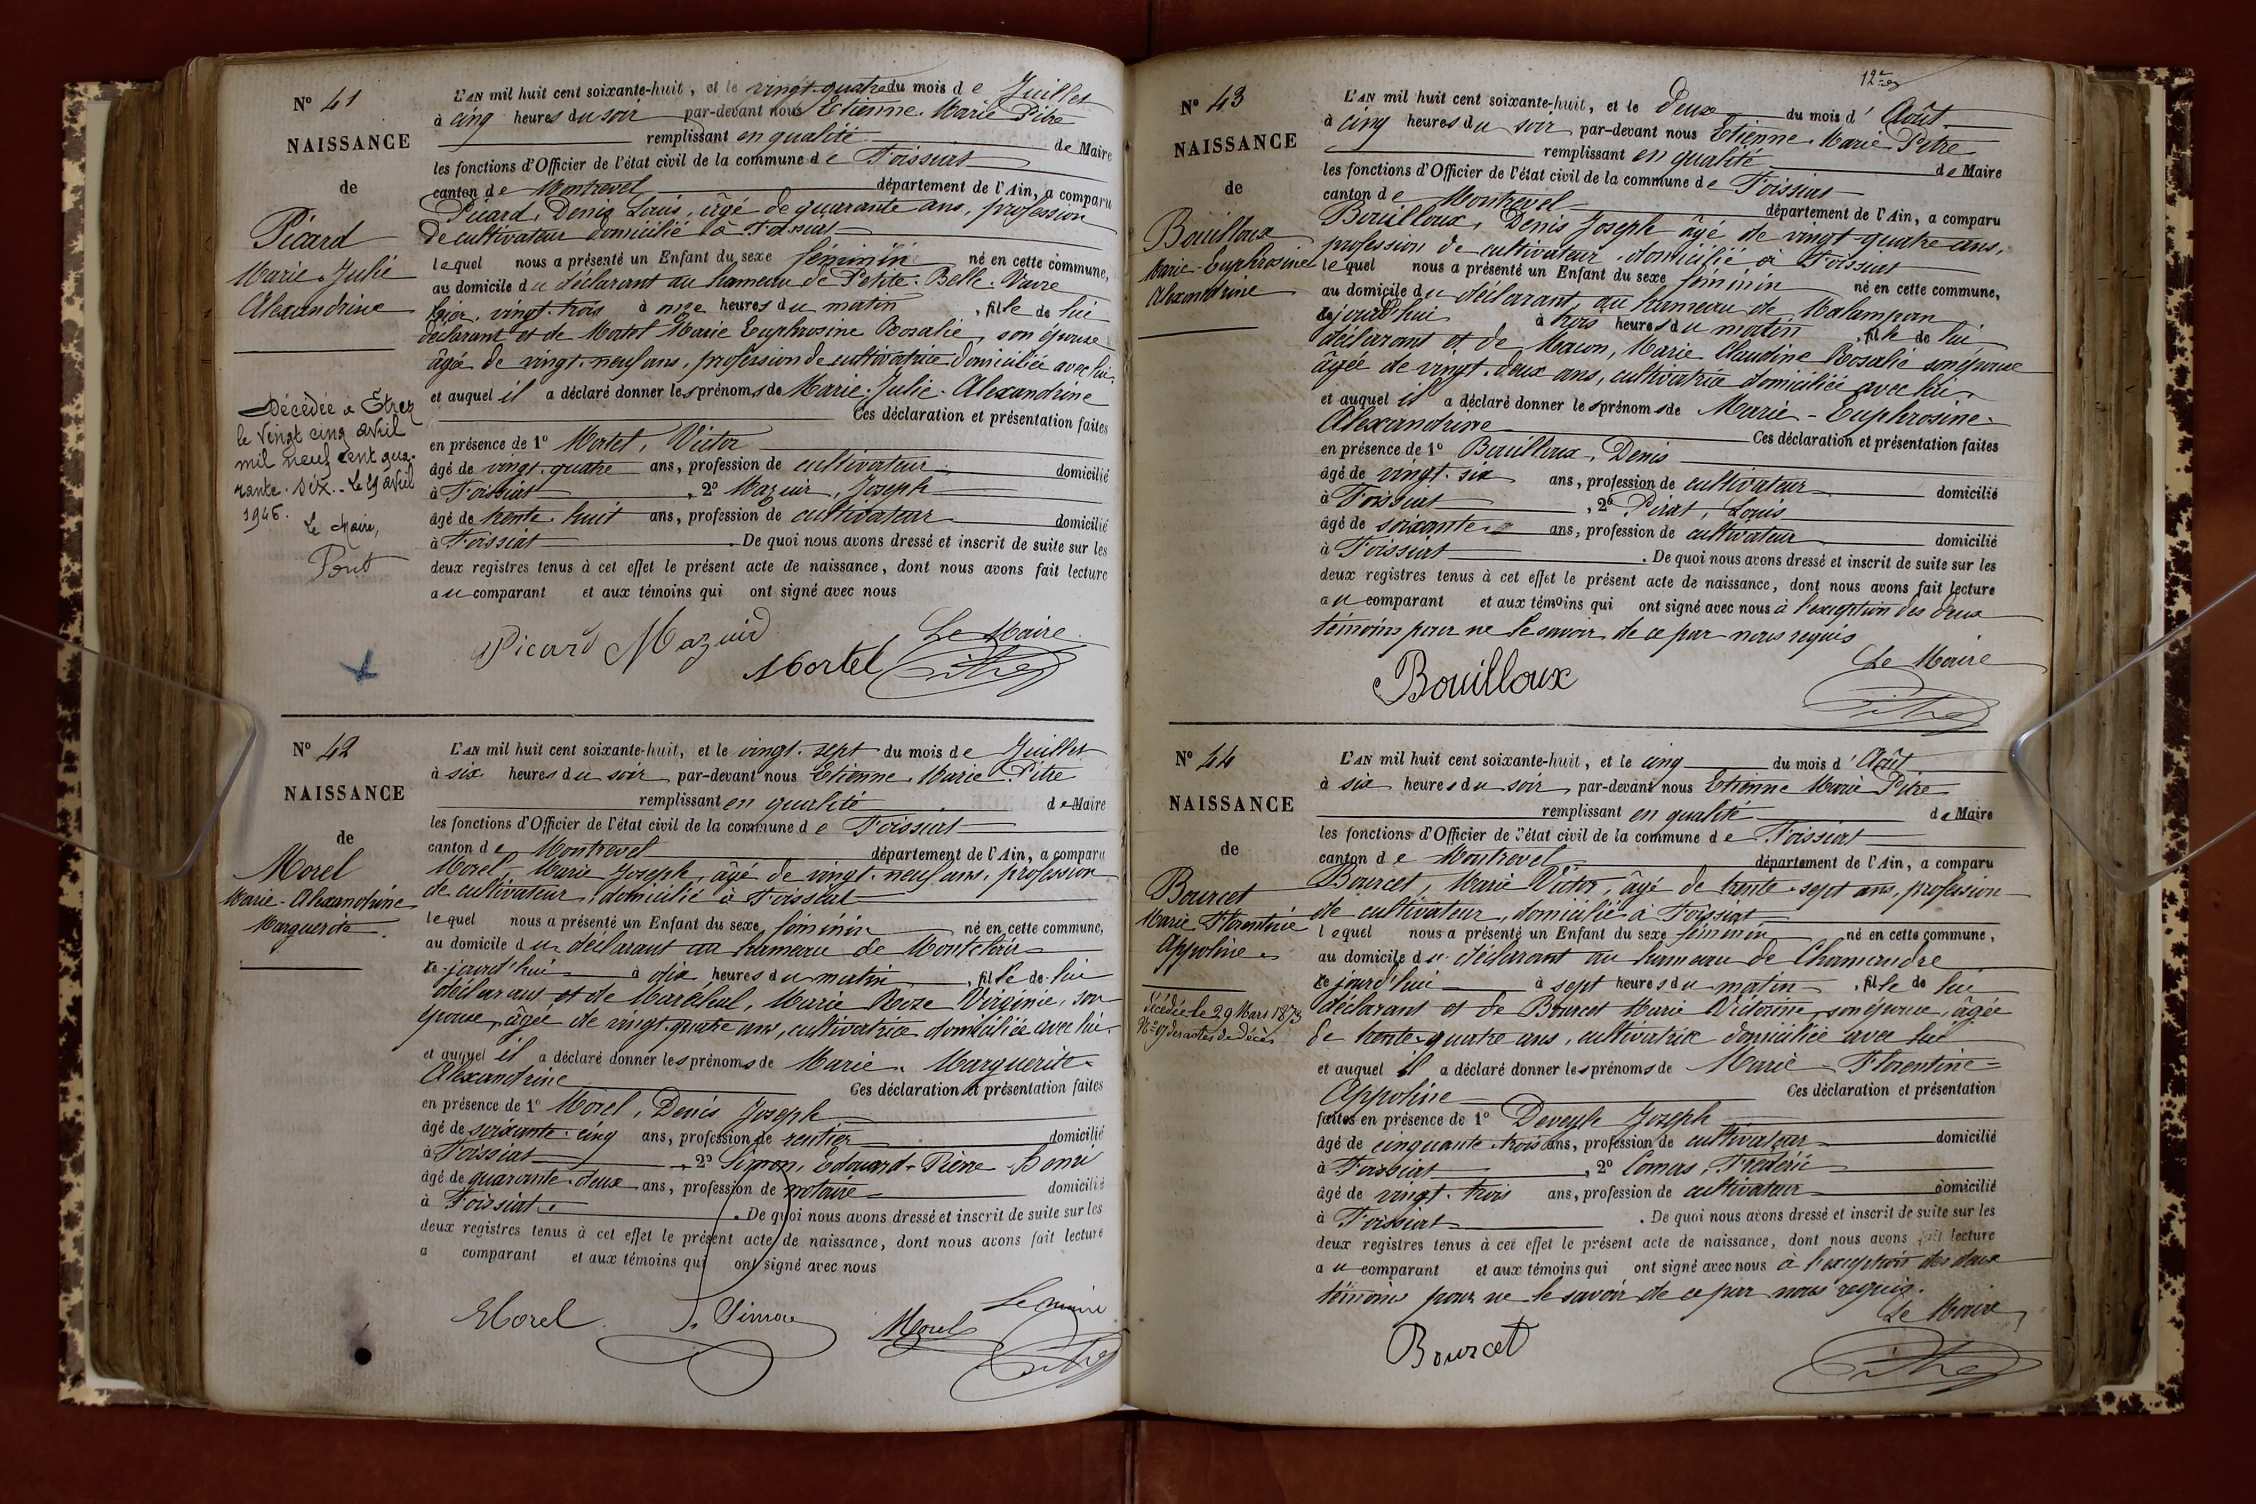 N° 41
NAISSANCE
de
Picard
Marie Julie
Alexandrine
Décédée à Etrez
le vingt cinq avril
mil neuf cent qua-
rante-six. Le 29 avril
1946.
Le Maire,
Pont
L'AN mil huit cent soixante-huit, et le vingt-quatre du mois de Juillet
à cinq heures du soir par-devant nous Etienne Marie Pitre
remplissant en qualité de Maire
les fonctions d'Officier de l'état civil de la commune de Foissiat
canton de Montrevel département de l'Ain, a comparu
Picard, Denis Louis, âgé de quarante ans, profession
de cultivateur domicilié à Foissiat
lequel nous a présenté un Enfant du sexe féminin né en cette commune,
au domicile du déclarant au hameau de Petite Belle Vavre
hier, vingt-trois à onze heures du matin, fille de lui
déclarant et de Mortel Marie Euphrosine Rosalie, son épouse
âgée de vingt-neuf ans, profession de cultivatrice domiciliée avec lui.
et auquel il a déclaré donner les prénoms de Marie Julie Alexandrine
Ces déclaration et présentation faites
en présence de 1° Mortel, Victor
âgé de vingt-quatre ans, profession de cultivateur domicilié
à Foissiat, 2° Mazuir, Joseph
âgé de trente-huit ans, profession de cultivateur domicilié
à Foissiat. De quoi nous avons dressé et inscrit de suite sur les
deux registres tenus à cet effet le présent acte de naissance, dont nous avons fait lecture
au comparant et aux témoins qui ont signé avec nous
Picard Mazuir
Mortel
Le Maire
Pitre
N° 42
NAISSANCE
de
Morel
Marie-Alexandrine
Marguerite
L'AN mil huit cent soixante-huit, et le vingt-sept du mois de Juillet
à six heures du soir par-devant nous Etienne Marie Pitre
remplissant en qualité de Maire
les fonctions d'Officier de l'état civil de la commune de Foissiat
canton de Montrevel département de l'Ain, a comparu
Morel, Marie Joseph, âgé de vingt-neuf ans, profession
de cultivateur, domicilié à Foissiat
lequel nous a présenté un Enfant du sexe féminin né en cette commune,
au domicile du déclarant au hameau de
ce jourd'hui à dix heures du matin, fille de lui
déclarant et de Maréchal, Marie Roze Virginie, son
épouse, âgée de vingt-quatre ans, cultivatrice domiciliée avec lui.
et auquel il a déclaré donner les prénoms de Marie Marguerite
Alexandrine Ces déclaration et présentation faites
en présence de 1° Morel, Denis Joseph
âgé de soixante-cinq ans, profession de rentier domicilié
à Foissiat, 2° Simon, Edouard Pierre
âgé de quarante-deux ans, profession de notaire domicilié
à Foissiat. De quoi nous avons dressé et inscrit de suite sur les
deux registres tenus à cet effet le présent acte de naissance, dont nous avons fait lecture
a comparant et aux témoins qui ont signé avec nous
Morel Simon Morel
Le maire
Pitre
N° 43
NAISSANCE
de
Bouilloux
Marie-Euphrosine
Alexandrine
L'AN mil huit cent soixante-huit, et le deux du mois d' Août
à cinq heures du soir par-devant nous Etienne Marie Pitre
remplissant en qualité de Maire
les fonctions d'Officier de l'état civil de la commune de Foissiat
canton de Montrevel département de l'Ain, a comparu
Bouilloux, Denis Joseph âgé de vingt-quatre ans,
profession de cultivateur, domicilié à Foissiat
lequel nous a présenté un Enfant du sexe féminin né en cette commune,
au domicile du déclarant, au hameau de Malampan
ce jourd'hui à trois heures du matin, fille de lui
déclarant et de Macon, Marie Claudine Rosalie son épouse
âgée de vingt-deux ans, cultivatrice domiciliée avec lui
et auquel il a déclaré donner les prénoms de Marie-Euphrosine
Alexandrine Ces déclaration et présentation faites
en présence de 1° Bouilloux, Denis
âgé de vingt-six ans, profession de cultivateur domicilié
à Foissiat, 2° Pirat, Louis
âgé de soixante ans, profession de cultivateur domicilié
à Foissiat. De quoi nous avons dressé et inscrit de suite sur les
deux registres tenus à cet effet le présent acte de naissance, dont nous avons fait lecture
au comparant et aux témoins qui ont signé avec nous à l'exception des deux
témoins pour ne le savoir de ce par nous requis
Bouilloux
Le Maire
Pitre
N° 44
NAISSANCE
de
Bourcet
Marie Florentine
Appoline
Décédée le 29 Mars 1873
N° 9 des actes de Décès
L'AN mil huit cent soixante-huit, et le cinq du mois d' Août
à six heures du soir, par-devant nous Etienne Marie Pitre
remplissant en qualité de Maire
les fonctions d'Officier de l'état civil de la commune de Foissiat
canton de Montrevel département de l'Ain, a comparu
Bourcet, Marie Victor, âgé de trente-sept ans, profession
de cultivateur, domicilié à Foissiat
lequel nous a présenté un Enfant du sexe féminin né en cette commune,
au domicile du déclarant au hameau de Chamandre
ce jourd'hui à sept heures du matin, fille de lui
déclarant et de Bourcet Marie Victorine, son épouse, âgée
de trente-quatre ans, cultivatrice domiciliée avec lui
et auquel il a déclaré donner les prénoms de Marie Florentine
Appoline Ces déclaration et présentation
faites en présence de 1° Deveyle Joseph
âgé de cinquante-trois ans, profession de cultivateur domicilié
à Foissiat, 2° Comas, Frédéric
âgé de vingt-trois ans, profession de cultivateur domicilié
à Foissiat. De quoi nous avons dressé et inscrit de suite sur les
deux registres tenus à cet effet le présent acte de naissance, dont nous avons fait lecture
au comparant et aux témoins qui ont signé avec nous à l'exception des deux
témoins pour ne le savoir de ce par nous requis.
Bourcet
Le Maire
Pitre